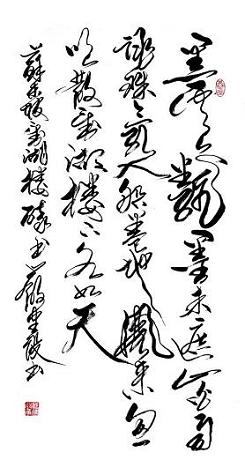 黑云翻墨未遮山白雨
跳珠乱入船卷地風来忽
吹散望湖楼下水如天
蘇東坡望湖楼醉书